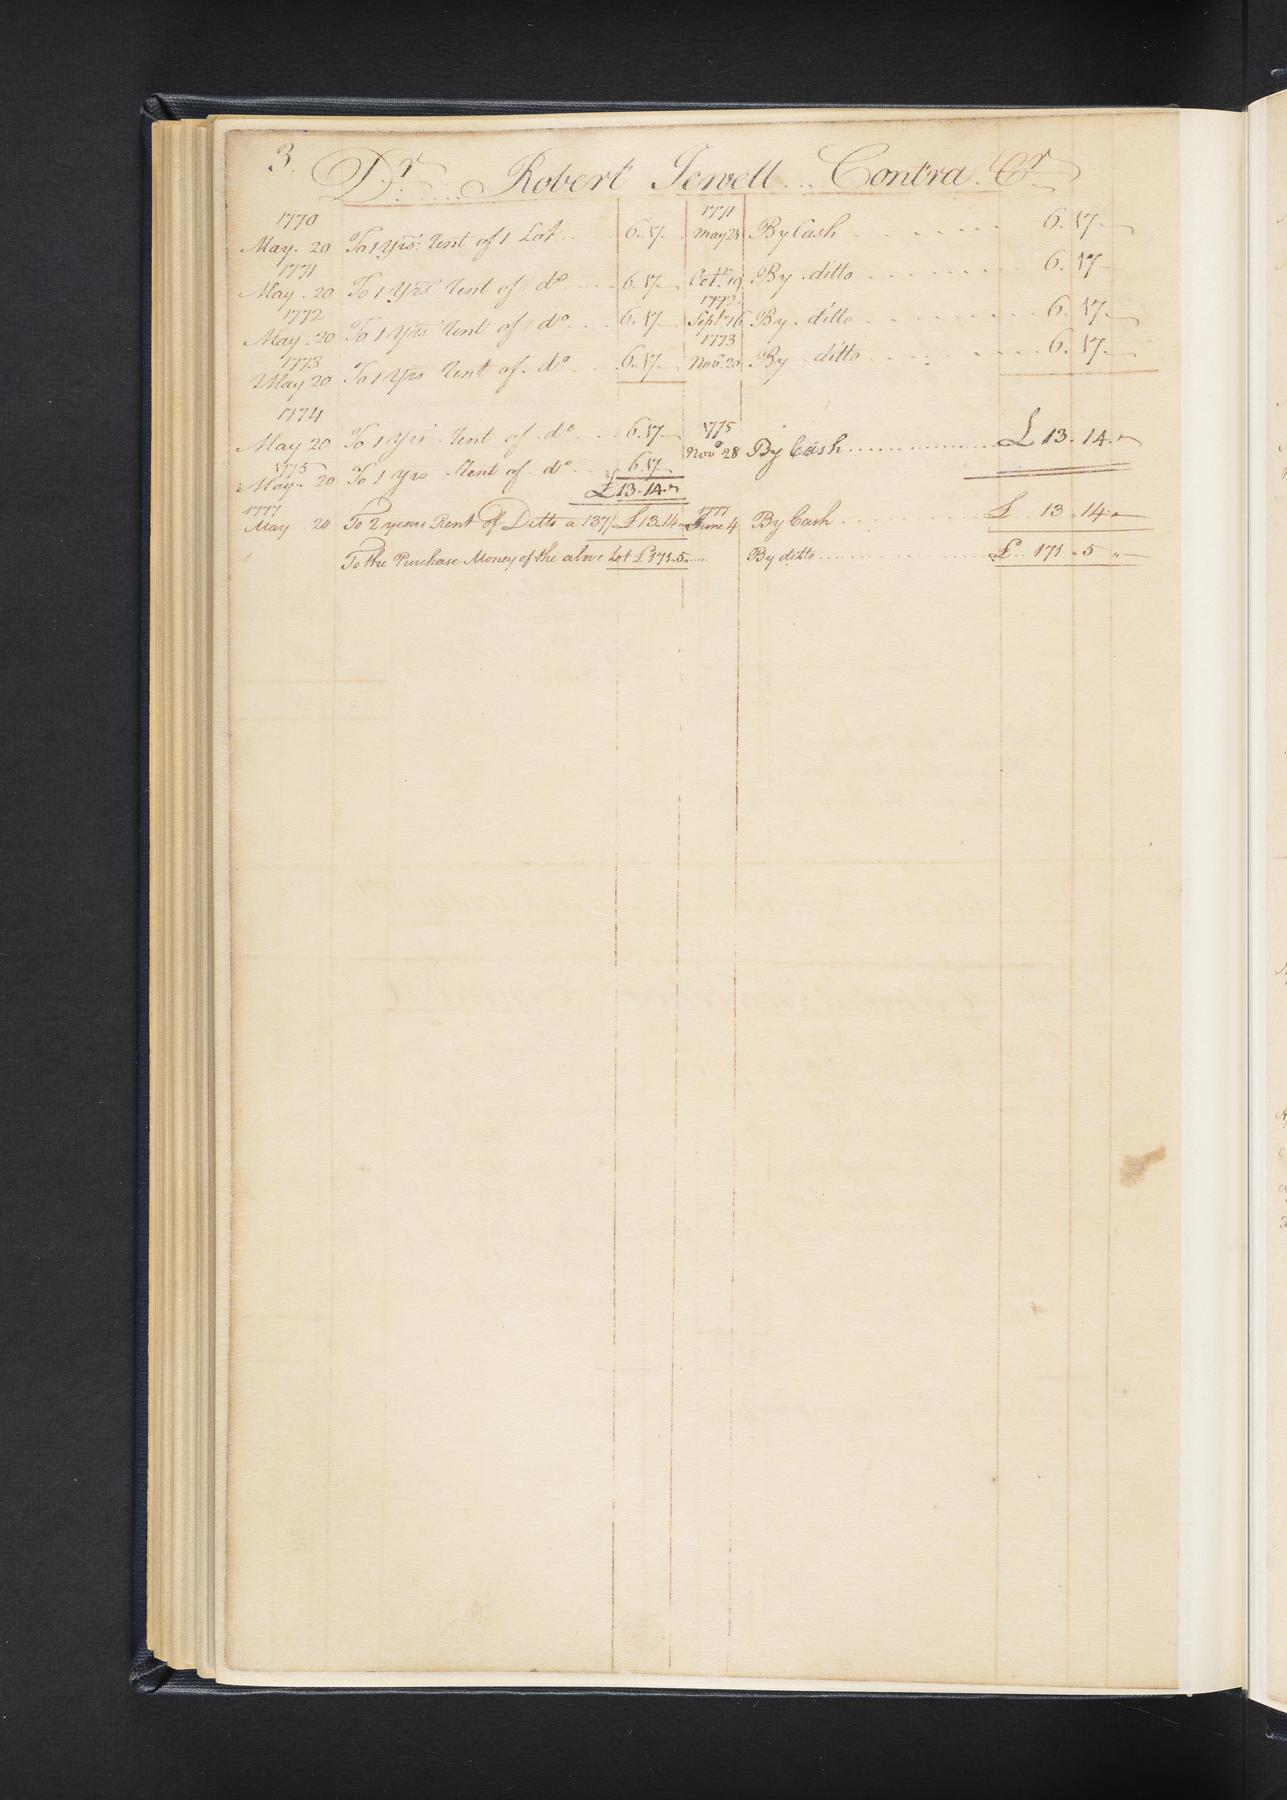 3.
Dr. Robert Jewell ... Contra. Cr
1770 1771
May. 20 To 1 Yrs: Rent of 1 Lot .... 6..17.. May 21 By Cash ........ 6..17..
1771
May. 20 To 1 Yrs Rent of do .... 6..17.. Octr. 19 By ditto ........ 6..17..
1772 1772
May. 20 To 1 Yrs Rent of do ... 6..17.. Sept. 16 By ditto ........ 6..17..
1773 1773
May 20 To 1 Yrs Rent of do ... 6..17.. Novr. 20 By ditto ........ 6..17..
1774
May 20 To 1 Yrs Rent of do ... 6..17.. 1775
Novr 28 By Cash .............. £ 13..14..
1775
May 20 To 1 Yrs Rent of do ... 6..17..
£13..14..
1777 1777
May 20 To 2 years Rent of Ditto a 137/ £13..14.. June 4 By Cash .......... £ 13..14..
To the Purchase Money of the above Lot £171..5.... By ditto .............. £.. 171..5..